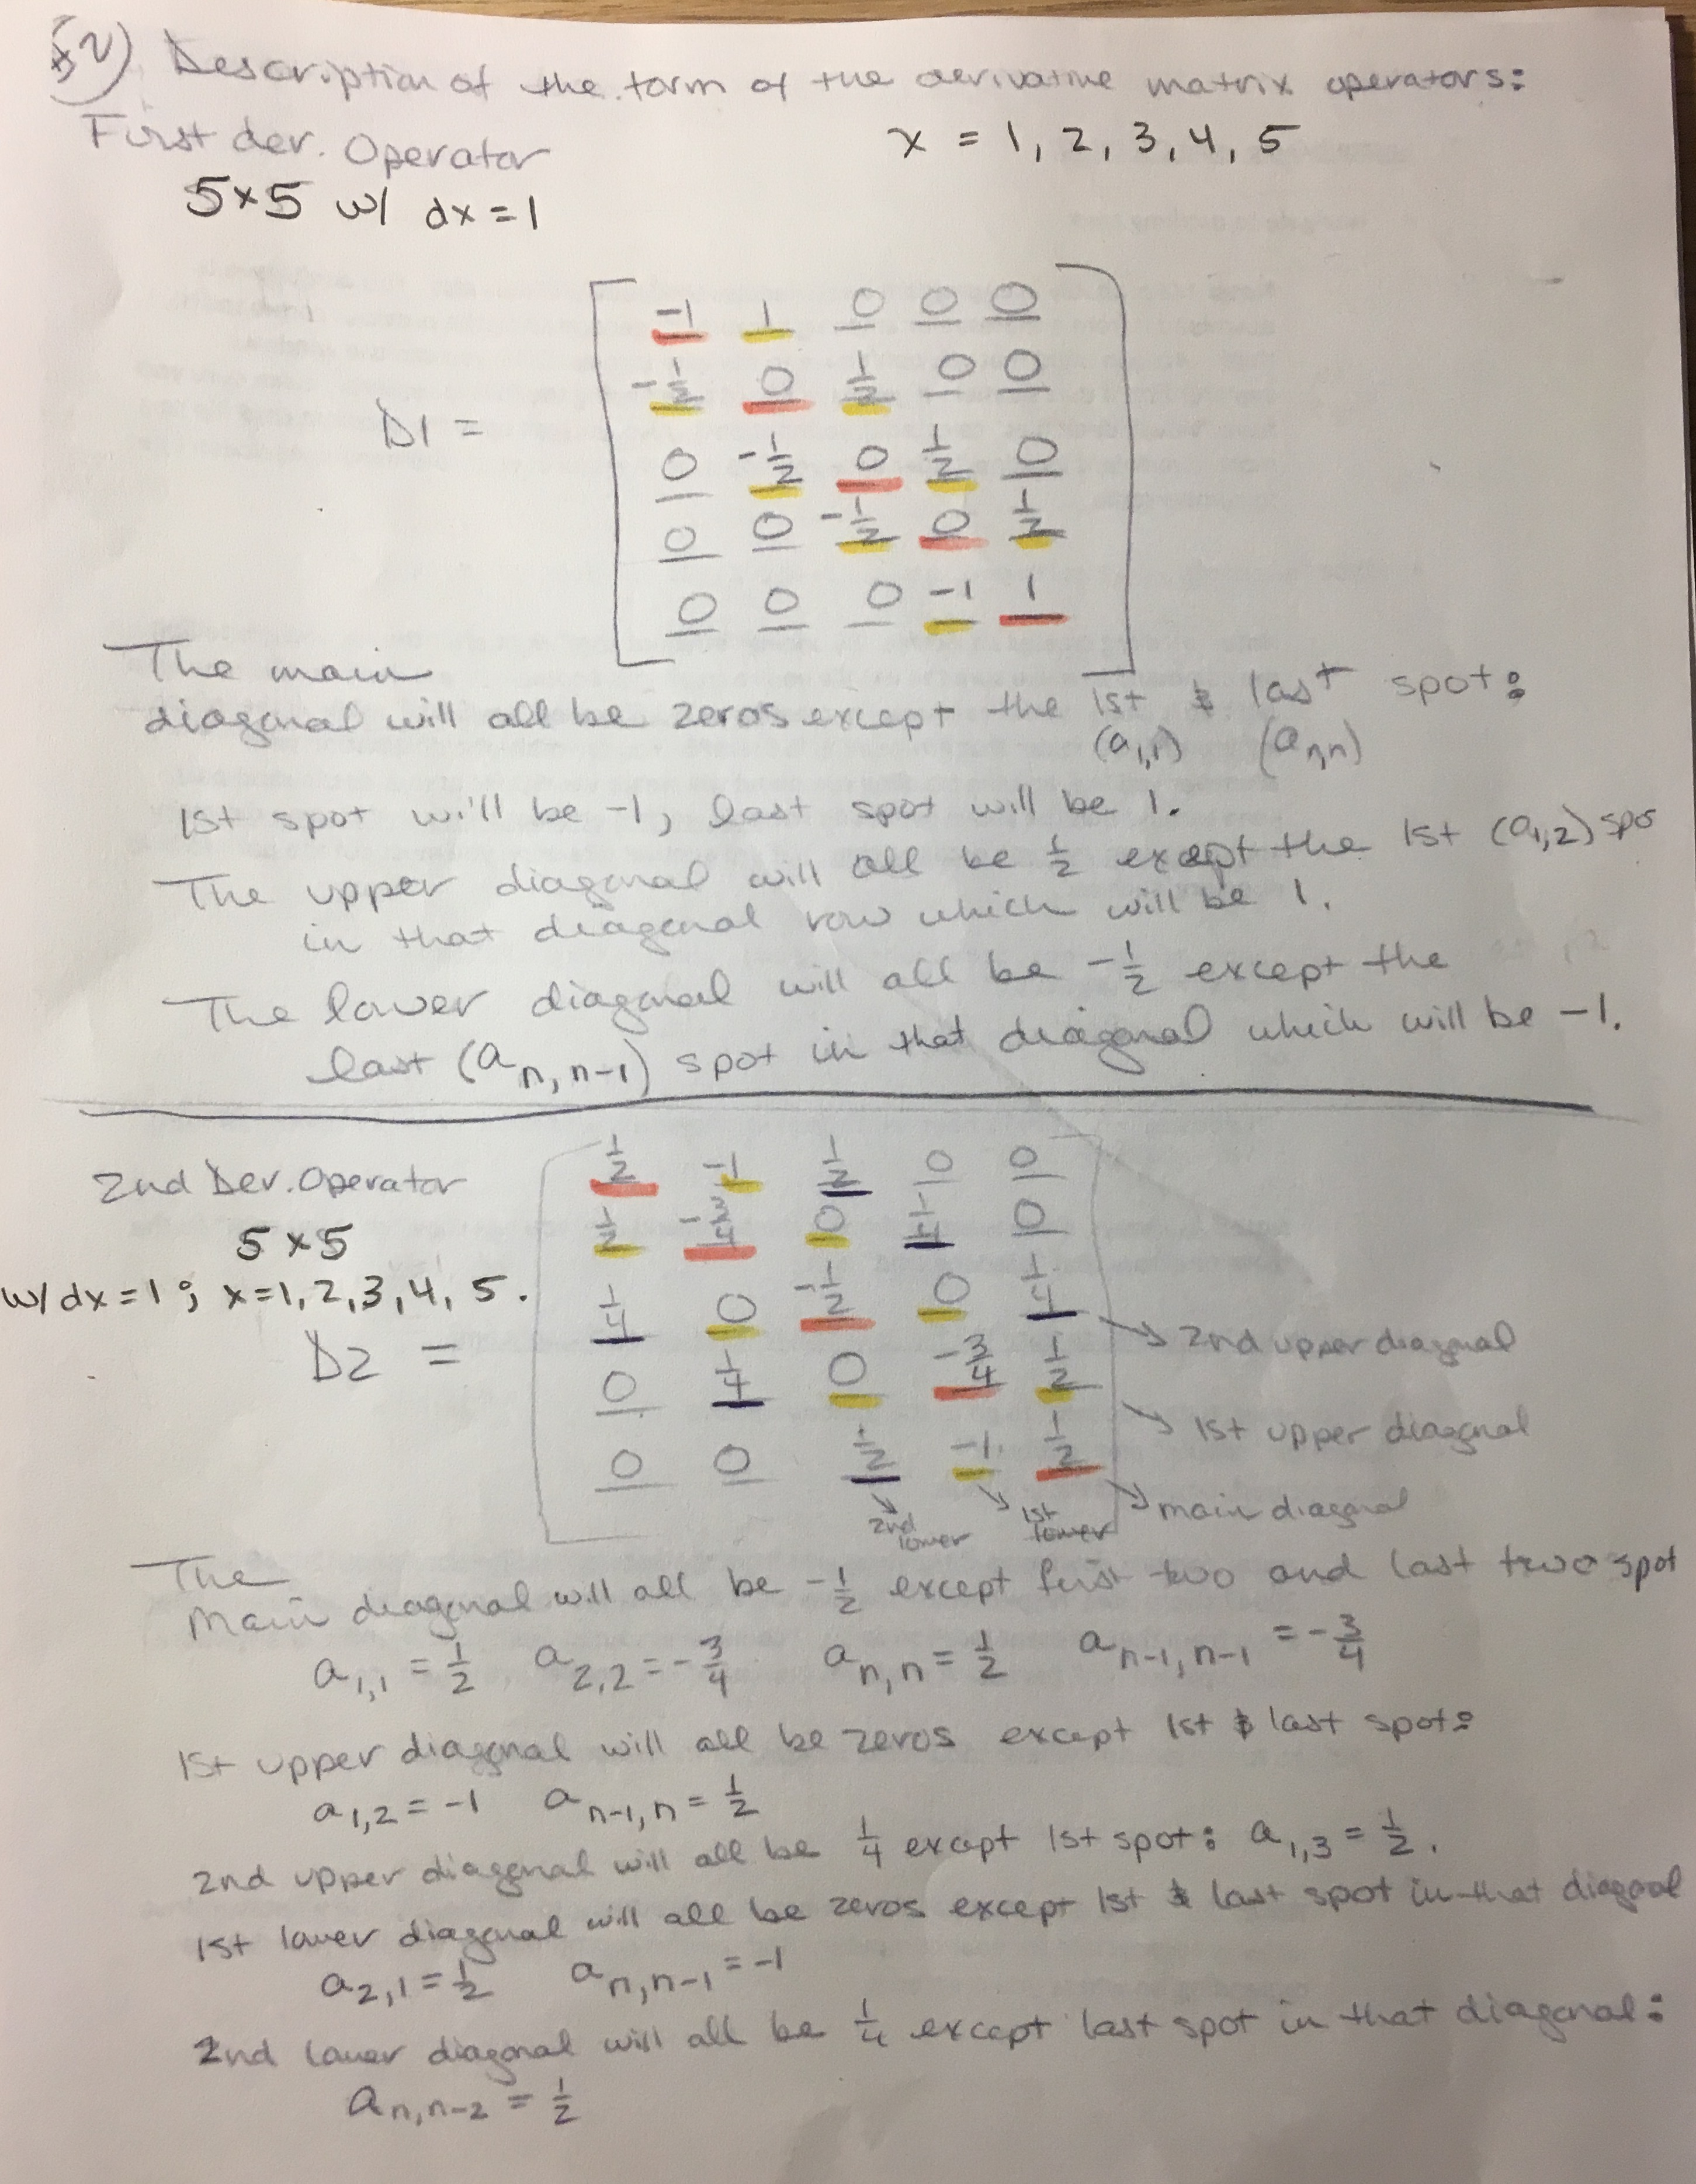 2) Description of the form of the derivative matrix operators:
First der. Operator
x = 1, 2, 3, 4, 5
5×5 w/ dx = 1
D1 =
-1 1 0 0 0
-1/2 0 1/2 0 0
0 -1/2 0 1/2 0
0 0 -1/2 0 1/2
0 0 0 -1 1
The main
diagonal will all be zeros except the 1st & last spot:
(a1,1) (an,n)
1st spot will be -1, last spot will be 1.
The upper diagonal will all be 1/2 except the 1st (a1,2) spo
in that diagonal row which will be 1.
The lower diagonal will all be -1/2 except the
last (an,n-1) spot in that diagonal which will be -1.
2nd Der. Operator
5×5
w/ dx = 1; x = 1, 2, 3, 4, 5.
D2 =
1/2 -1 1/2 0 0
1/2 -3/4 0 1/4 0
1/4 0 -1/2 0 1/4
0 1/4 0 -3/4 1/2
0 0 1/2 -1 1/2
2nd upper diagonal
1st upper diagonal
main diagonal
2nd lower
1st lower
The
Main diagonal will all be -1/2 except first two and last two spot
a1,1 = 1/2 a2,2 = -3/4 an,n = 1/2 an-1,n-1 = -3/4
1st upper diagonal will all be zeros except 1st & last spot:
a1,2 = -1 an-1,n = 1/2
2nd upper diagonal will all be 1/4 except 1st spot: a1,3 = 1/2.
1st lower diagonal will all be zeros except 1st & last spot in that diagonal
a2,1 = 1/2 an,n-1 = -1
2nd lower diagonal will all be 1/4 except last spot in that diagonal:
an,n-2 = 1/2